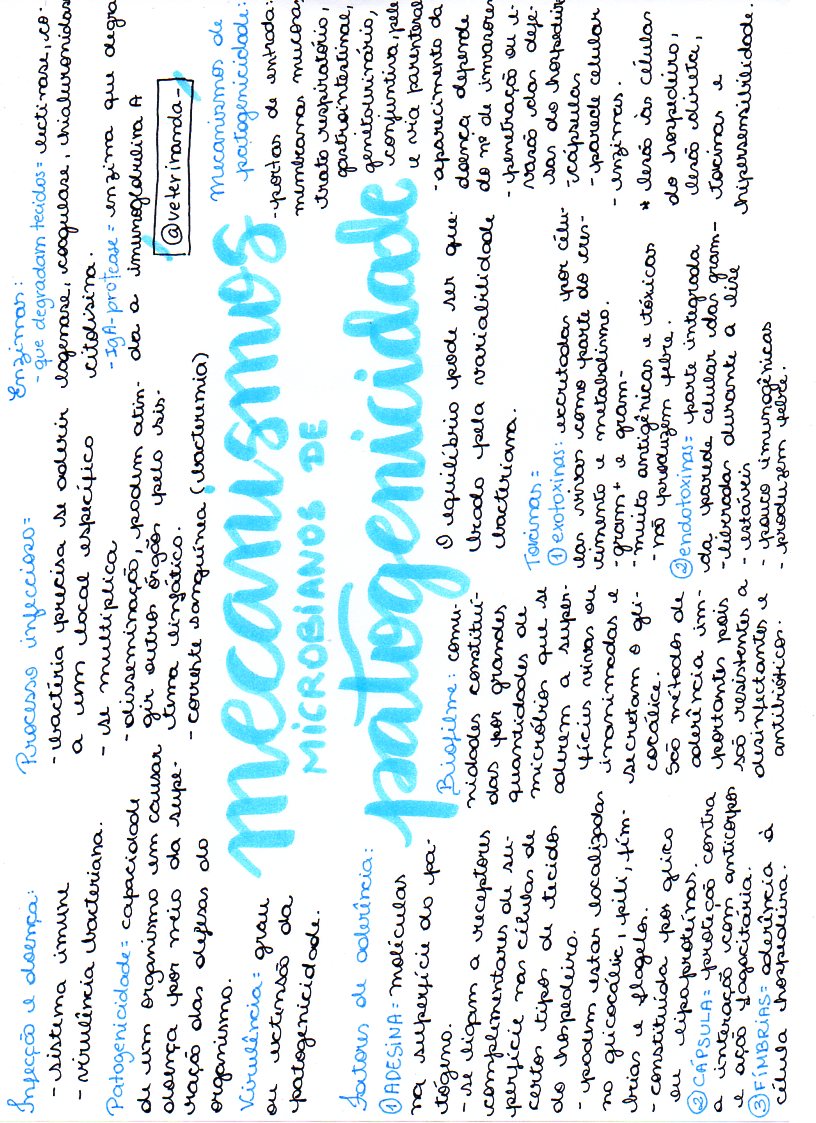 Infecção e doença:
- sistema imune
- virulência bacteriana.
Patogenicidade= capacidade
de um organismo em causar
doença por meio da supe-
ração das defesas do
organismo.
Virulência= grau
ou extensão da
patogenicidade.
Processo infeccioso=
- bactéria precisa se aderir
a um local específico
- se multiplica
- disseminação, podem atin-
gir outros órgãos pelo sis-
tema linfático.
- corrente sanguínea (bacteremia)
Enzimas:
- que degradam tecidos= lecitinase, co-
lagenase, coagulase, hialuronidase
citolisina.
- IgA-protease= enzima que degra-
da a imunoglobulina A
@veteriranda_
mecanismos
MICROBIANOS DE
patogenicidade
Fatores de aderência:
① ADESINA= moléculas
na superfície do pa-
tógeno.
- se ligam a receptores
complementares de su-
perfície nas células de
certos tipos de tecidos
do hospedeiro.
- podem estar localizadas
no glicocálix, pili, fím-
brias e flagelos.
- constituída por glico
ou lipoproteínas.
② CÁPSULA= proteção contra
a interação com anticorpos
e ação fagocitária.
③ FÍMBRIAS= aderência à
célula hospedeira.
Biofilme: comu-
nidades constituí-
das por grandes
quantidades de
micróbios que se
aderem a super-
fícies vivas ou
inanimadas e
secretam o gli-
cocálice.
São métodos de
aderência im-
portantes pois
são resistentes a
desinfectantes e
antibióticos.
O equilíbrio pode ser que-
brado pela variabilidade
bacteriana.
Toxinas=
① exotoxinas: excretadas por célu-
las vivas como parte do cres-
cimento e metabolismo.
- gram+ e gram-
- muito antigênicas e tóxicas
- não produzem febre.
② endotoxinas= parte integrada
da parede celular das gram-
- liberadas durante a lise
- estáveis
- pouco imunogênicas
- produzem febre.
Mecanismos de
patogenicidade:
- portas de entrada:
membranas mucosas
trato respiratório,
gastrointestinal,
genitourinário,
conjuntiva, pele
e via parenteral
- aparecimento da
doença depende
do nº de invasores
- penetração ou e-
vasão das defe-
sas do hospedeiro
- cápsulas
- parede celular
- enzimas.
* lesão às células
do hospedeiro,
lesão direta,
toxinas e
hipersensibilidade.